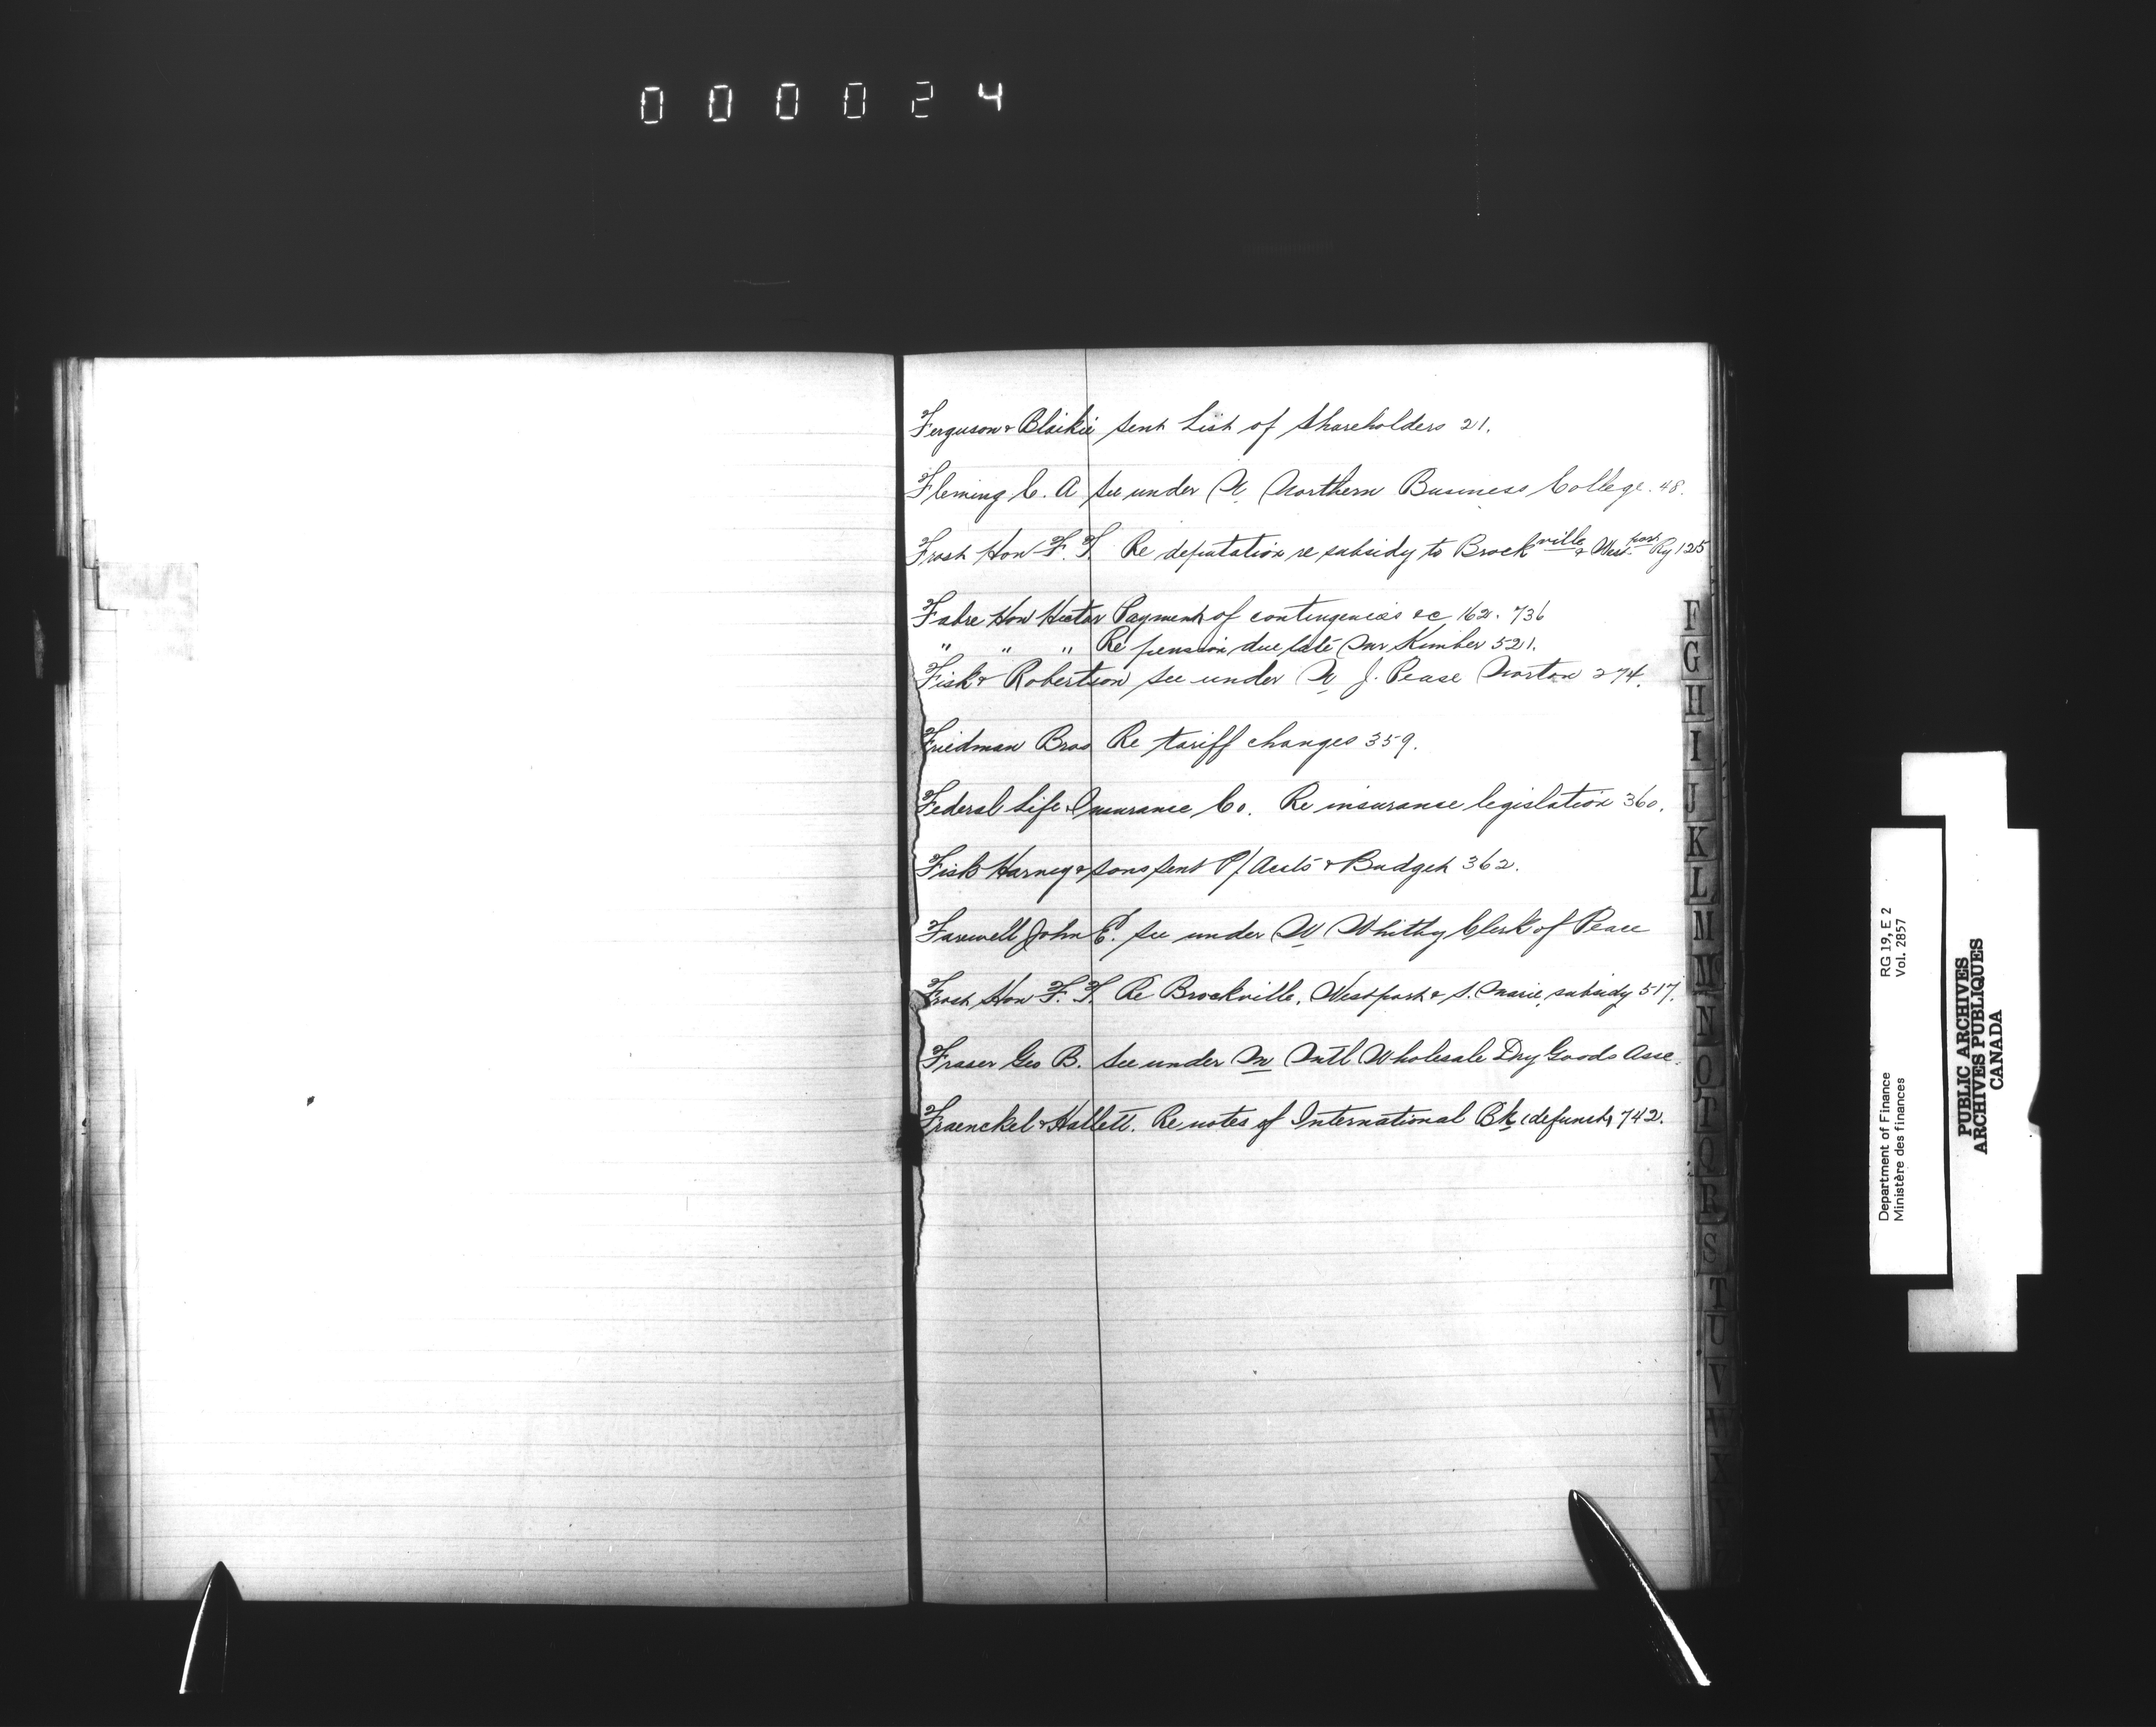 000024
Ferguson & Blaikie sent List of Shareholders 21.
Fleming C. A. see under N Northern Business College. 48.
Frost Hon F. T. Re deputation re subsidy to Brockville & Westport Ry 125
Fabre Hon Hector Payment of contingencies &c 162. 736
" " " Re pension due late Mr Kimber 521.
Fisk & Robertson see under N J. Pease Norton 274.
Friedman Bros Re tariff changes 359.
Federal Life Insurance Co. Re insurance legislation 360.
Fisk Harvey & Sons sent P/Accts & Budget 362.
Farewell John E. see under W Whitby Clerk of Peace
Frost Hon F. T. Re Brockville, Westport & S. Marie, subsidy 517.
Fraser Geo B. See under M Mtl Wholesale Dry Goods Assc.
Fraenckel & Hallett. Re notes of International Bk (defunct) 742.
F
G
H
I
J
K
L
M
N
O
R
S
T
U
V
RG 19, E 2
Vol. 2857
Department of Finance
Ministère des finances
PUBLIC ARCHIVES
ARCHIVES PUBLIQUES
CANADA